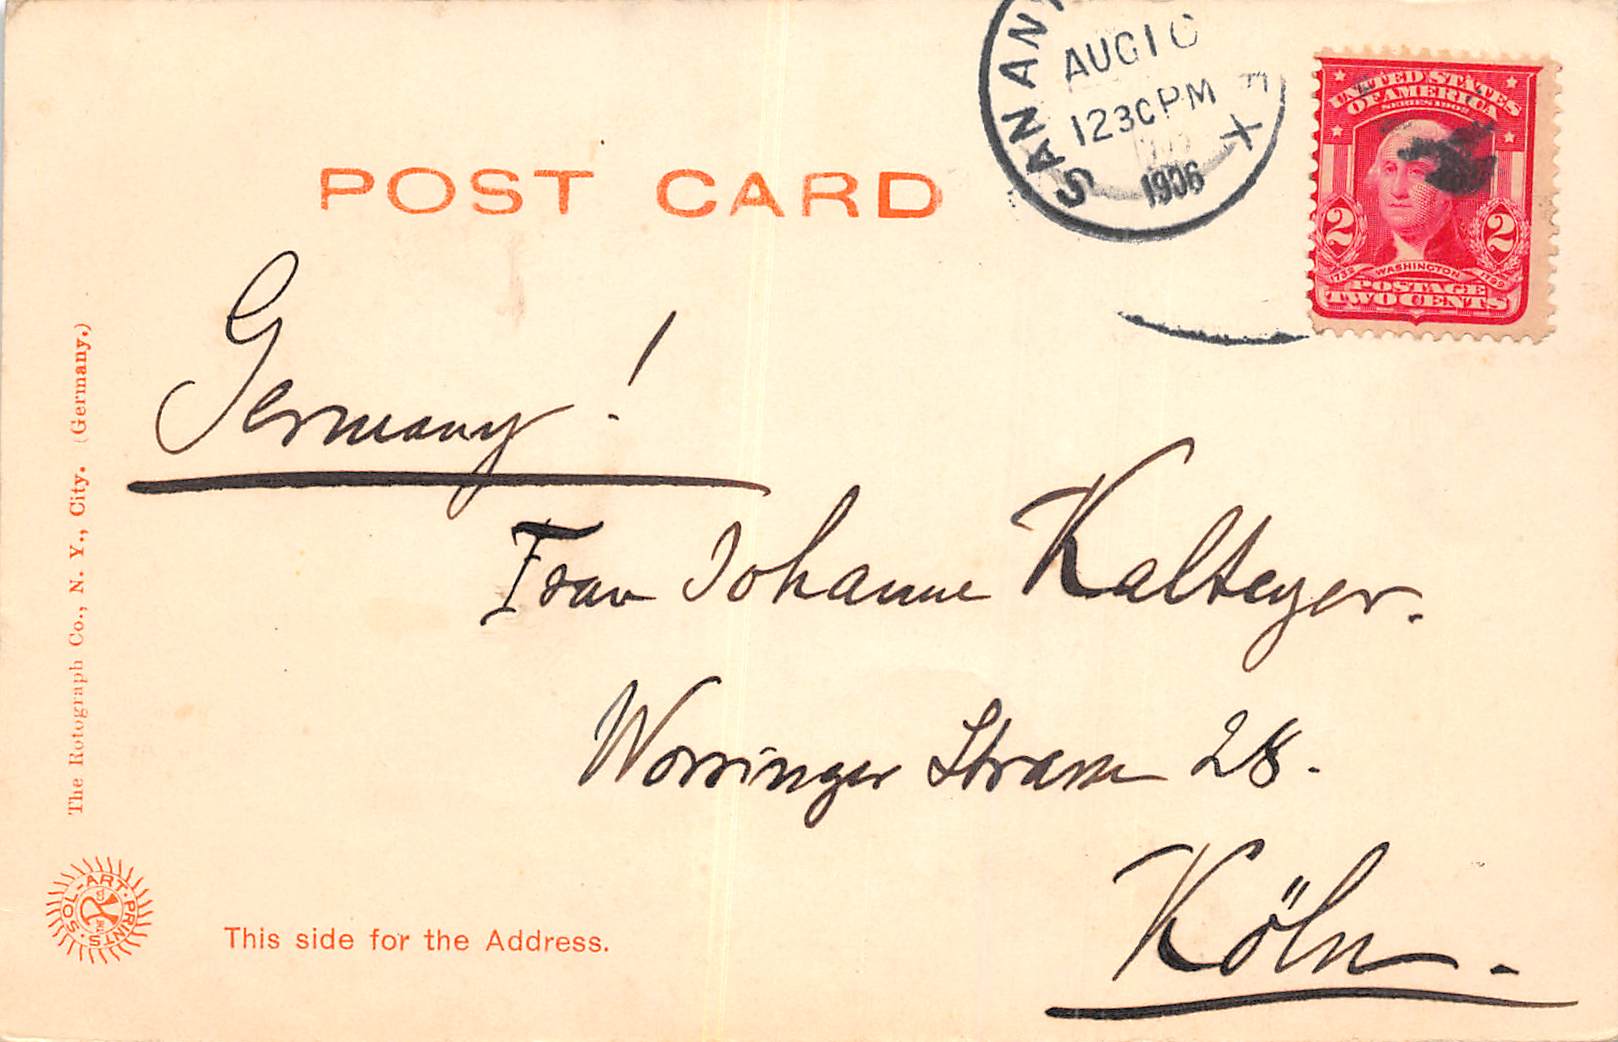 POST CARD
SAN AN
AUG 10
1230 PM
1906
TEX
UNITED STATES
OF AMERICA
SERIES 1902
2 2
1732 WASHINGTON 1799
POSTAGE
TWO CENTS
Germany!
Frau Johanne Kalteyer.
Worringer Strasse 28.
Köln.
The Rotograph Co., N. Y., City. (Germany.)
SOL-ART PRINTS
This side for the Address.